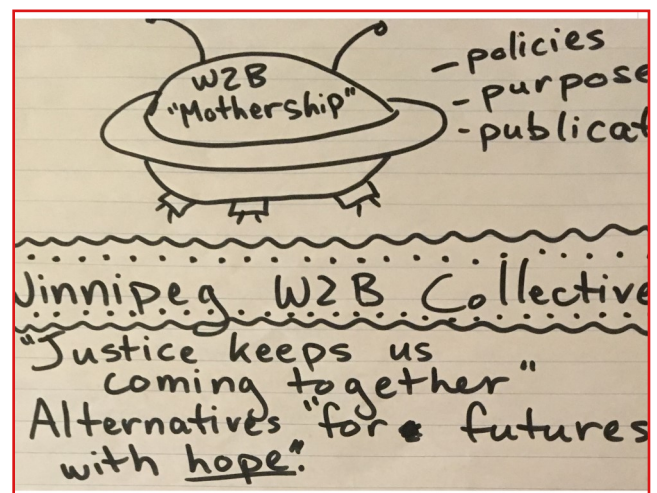 W2B
"Mothership"
- policies
- purpose
- publicat
Winnipeg W2B Collective
"Justice keeps us
coming together"
Alternatives "for futures
with hope".